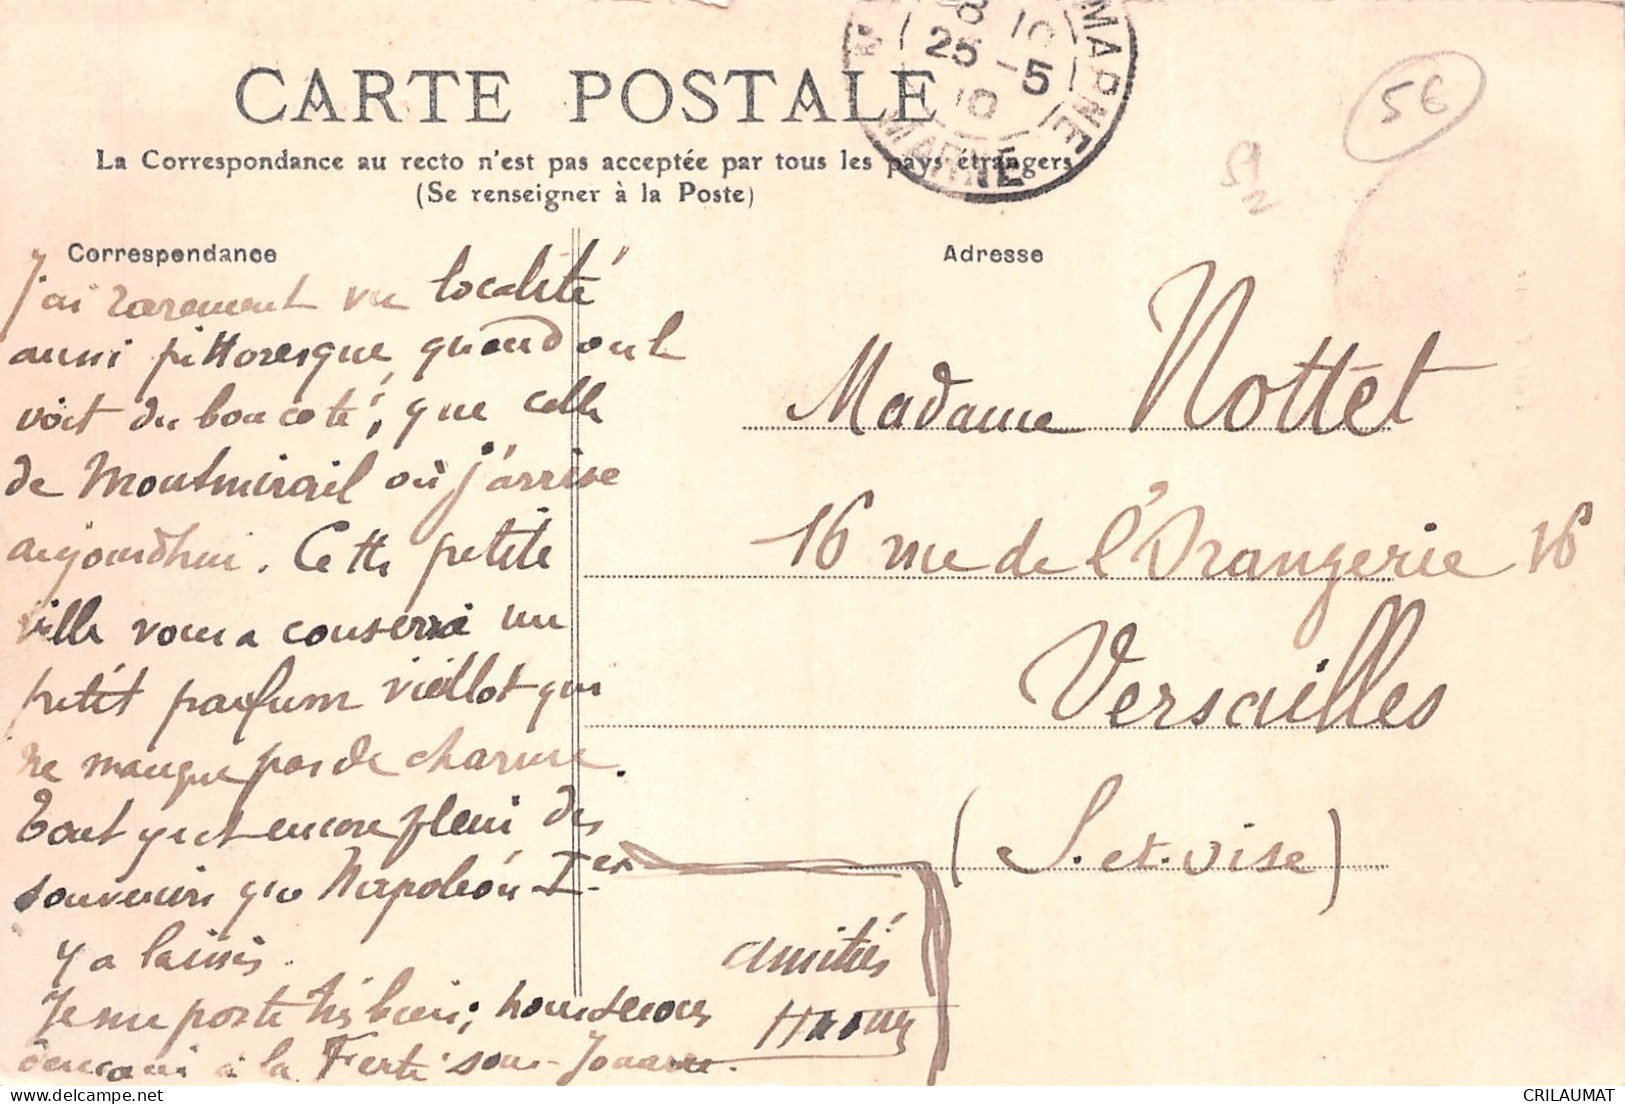 CARTE POSTALE
La Correspondance au recto n'est pas acceptée par tous les pays étrangers
(Se renseigner à la Poste)
MARNE
25 -5
10
MARNE
5€
Correspondance
J'ai rarement vu localité
aussi pittoresque, quand on la
voit du bon coté, que celle
de Montmirail où j'arrive
aujourdhui. Cette petite
ville vous a conservé un
petit parfum vieillot qui
ne manque pas de charme.
Tout y est encore plein des
souvenirs que Napoléon Ier
y a laissés.
Je me porte très bien; nous serons
demain à la Ferté-sous-Jouarre.
amitiés
Adresse
Madame Nottet
16 rue de l'Orangerie 16
Versailles
(S.-et-Oise)
CRILAUMAT